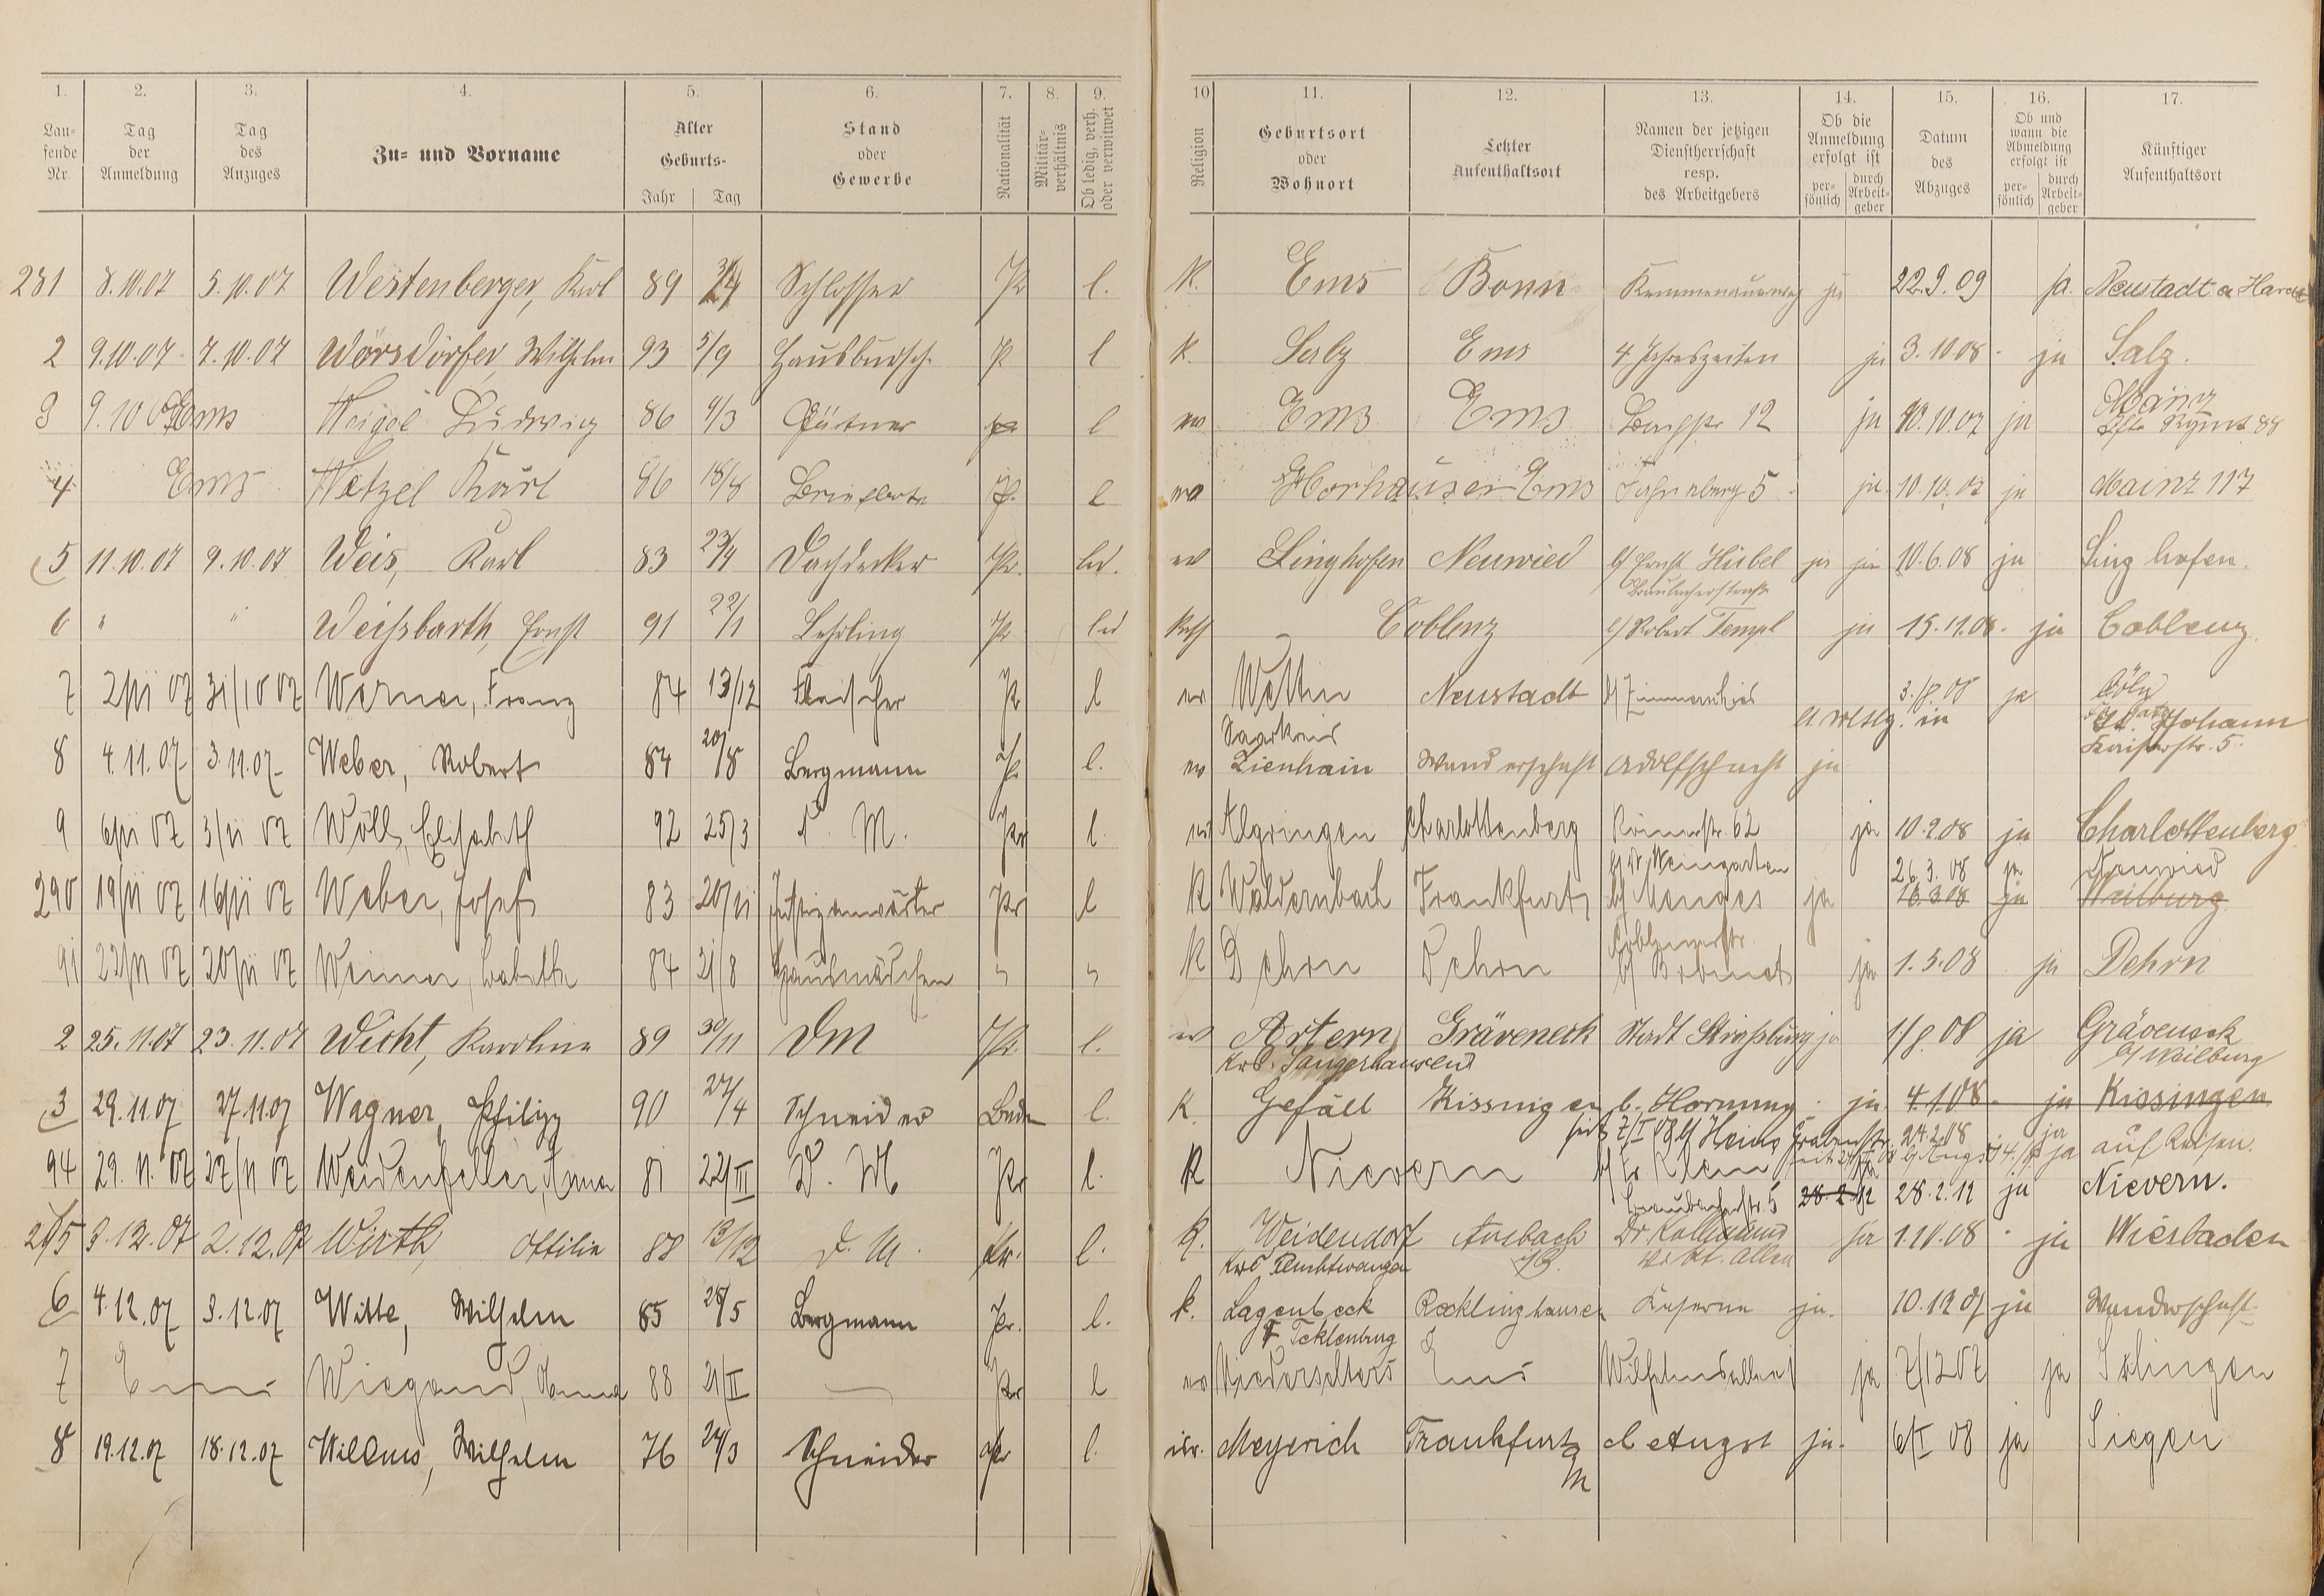 1. 2. 3. 4. 5. 6. 7. 8. 9. 10 11. 12. 13. 14. 15. 16. 17.
Lau-
fende
Nr.
Tag
der
Anmeldung
Tag
des
Anzuges
Zu- und Vorname
Alter
Geburts-
Jahr Tag
Stand
oder
Gewerbe
Nationalität
Militär-
verhältnis
Ob ledig, verh.
oder verwitwet
Religion
Geburtsort
oder
Wohnort
Letzter
Aufenthaltsort
Namen der jetzigen
Dienstherrschaft
resp.
des Arbeitgebers
Ob die
Anmeldung
erfolgt ist
per-
sönlich
durch
Arbeit-
geber
Datum
des
Abzuges
Ob und
wann die
Abmeldung
erfolgt ist
per-
sönlich
durch
Arbeit-
geber
Künftiger
Aufenthaltsort
281 8.10.07 5.10.07 Westenberger, Karl 89 Schlosser Pr l. K. Ems Bonn Kemmenauerweg ja 22.9.09 ja. Neustadt a Hardt
2 9.10.07 7.10.07 Wörsdörfer, Wilhelm 93 5/9 Hausbursch. P l K. Salz Ems 4 Jahreszeiten ja 3.10 08 ja Salz.
3 9.10 07 Ems Weigel Ludwig 86 9/3 Gärtner l ev Ems Ems 12 ja 10.10.07 ja Mainz
88
4 Ems Wetzel Karl 86 18/8 Briefbote P. l ev Horhausen Ems 5 ja. 10.10.07 ja Mainz 117
5 11.10.07 9.10.07 Weis, Karl 83 23/4 Dachdecker Pr. led. ev Singhofen Neuwied b/ Ernst Hübel ja ja 10.6.08 ja Singhofen.
Braubacherstraße
6 " " Weißbarth, Ernst 91 22/1 Lehrling Pr led Kath Coblenz b/ Robert Templ ja 15.11.08. ja Coblenz.
7 2/11 07 31/10 07 Werner, Franz 84 13/12 Fleischer Pr l ev Wettin Neustadt b/ 3./8.08 ja Cöln
Saarkreis in St. Johann
Kaiserstr. 5.
8 4.11.07 3.11.07 Weber, Robert 84 20/8 Bergmann Pr l. ev Zienhain Wanderschaft Adolfschacht ja
9 6/11 07 3/11 07 Wöll, Elisabeth 92 25/3 D. M. Pr l. ev Algringen Charlottenberg Römerstr. 62 ja 10.2.08 ja Charlottenberg
b/ Dr. Weingarten 26.3.08 ja Neuwied
290 19/11 07 16/11 07 Weber, Josef 83 20/11 Justizanwärter Pr l K Waldernbach Frankfurt b/ Menges ja 16.3.08 ja Weilburg
Coblenzerstr.
91 22/11 07 20/11 07 Weimer, Babette 84 31/8 Hausmädchen " " K Dehrn Dehrn ja 1.5.08 ja Dehrn
2 25.11.07 23.11.07 Wicht, Karoline 89 30/11 DM Pr. l. ev Artern Gräveneck Stadt Straßburg ja 1/8.08 ja Gräveneck
Krs. Sangerhausen b/ Weilburg
3 29.11.07 27.11.07 Wagner, Philipp 90 27/4 Schneider Baden l. K. Gefäll Kissingen b. Hornung ja. 4.1.08 ja Kissingen
seit 7/I 08 b/ Heins Grabenstr. 24.2.08 ja auf Reisen.
94 29.11.07 27/11 07 Weidenfeller, Anna 81 22/III D. M. Pr l. K Nievern b/ Fr. Klein ja
Braubacherstr. 5 28.2.12 28.2.12 ja Nievern.
295 3.12.07 2.12.07 Wirth, Ottilie 88 13/12 D. M. l. K. Weidendorf Ansbach Dr ja 1.10.08 ja Wiesbaden
Krs Feuchtwangen
6 4.12.07 3.12.07 Witte, Wilhelm 85 28/5 Bergmann Pr. l. k. Lagenbeck Recklinghausen Kaserne ja. 10.12 07 ja Wanderschaft
Tecklenburg
7 Ems Wiegand, Anna 88 21/II Pr l ev Niederselters Ems Wilhelmsallee ja 7/12 07 ja Solingen
8 19.12.07 18.12.07 Willms, Wilhelm 76 24/3 Schneider Pr l. isr. Meyerich Frankfurt b Augst ja. 6/I 08 ja Siegen
M